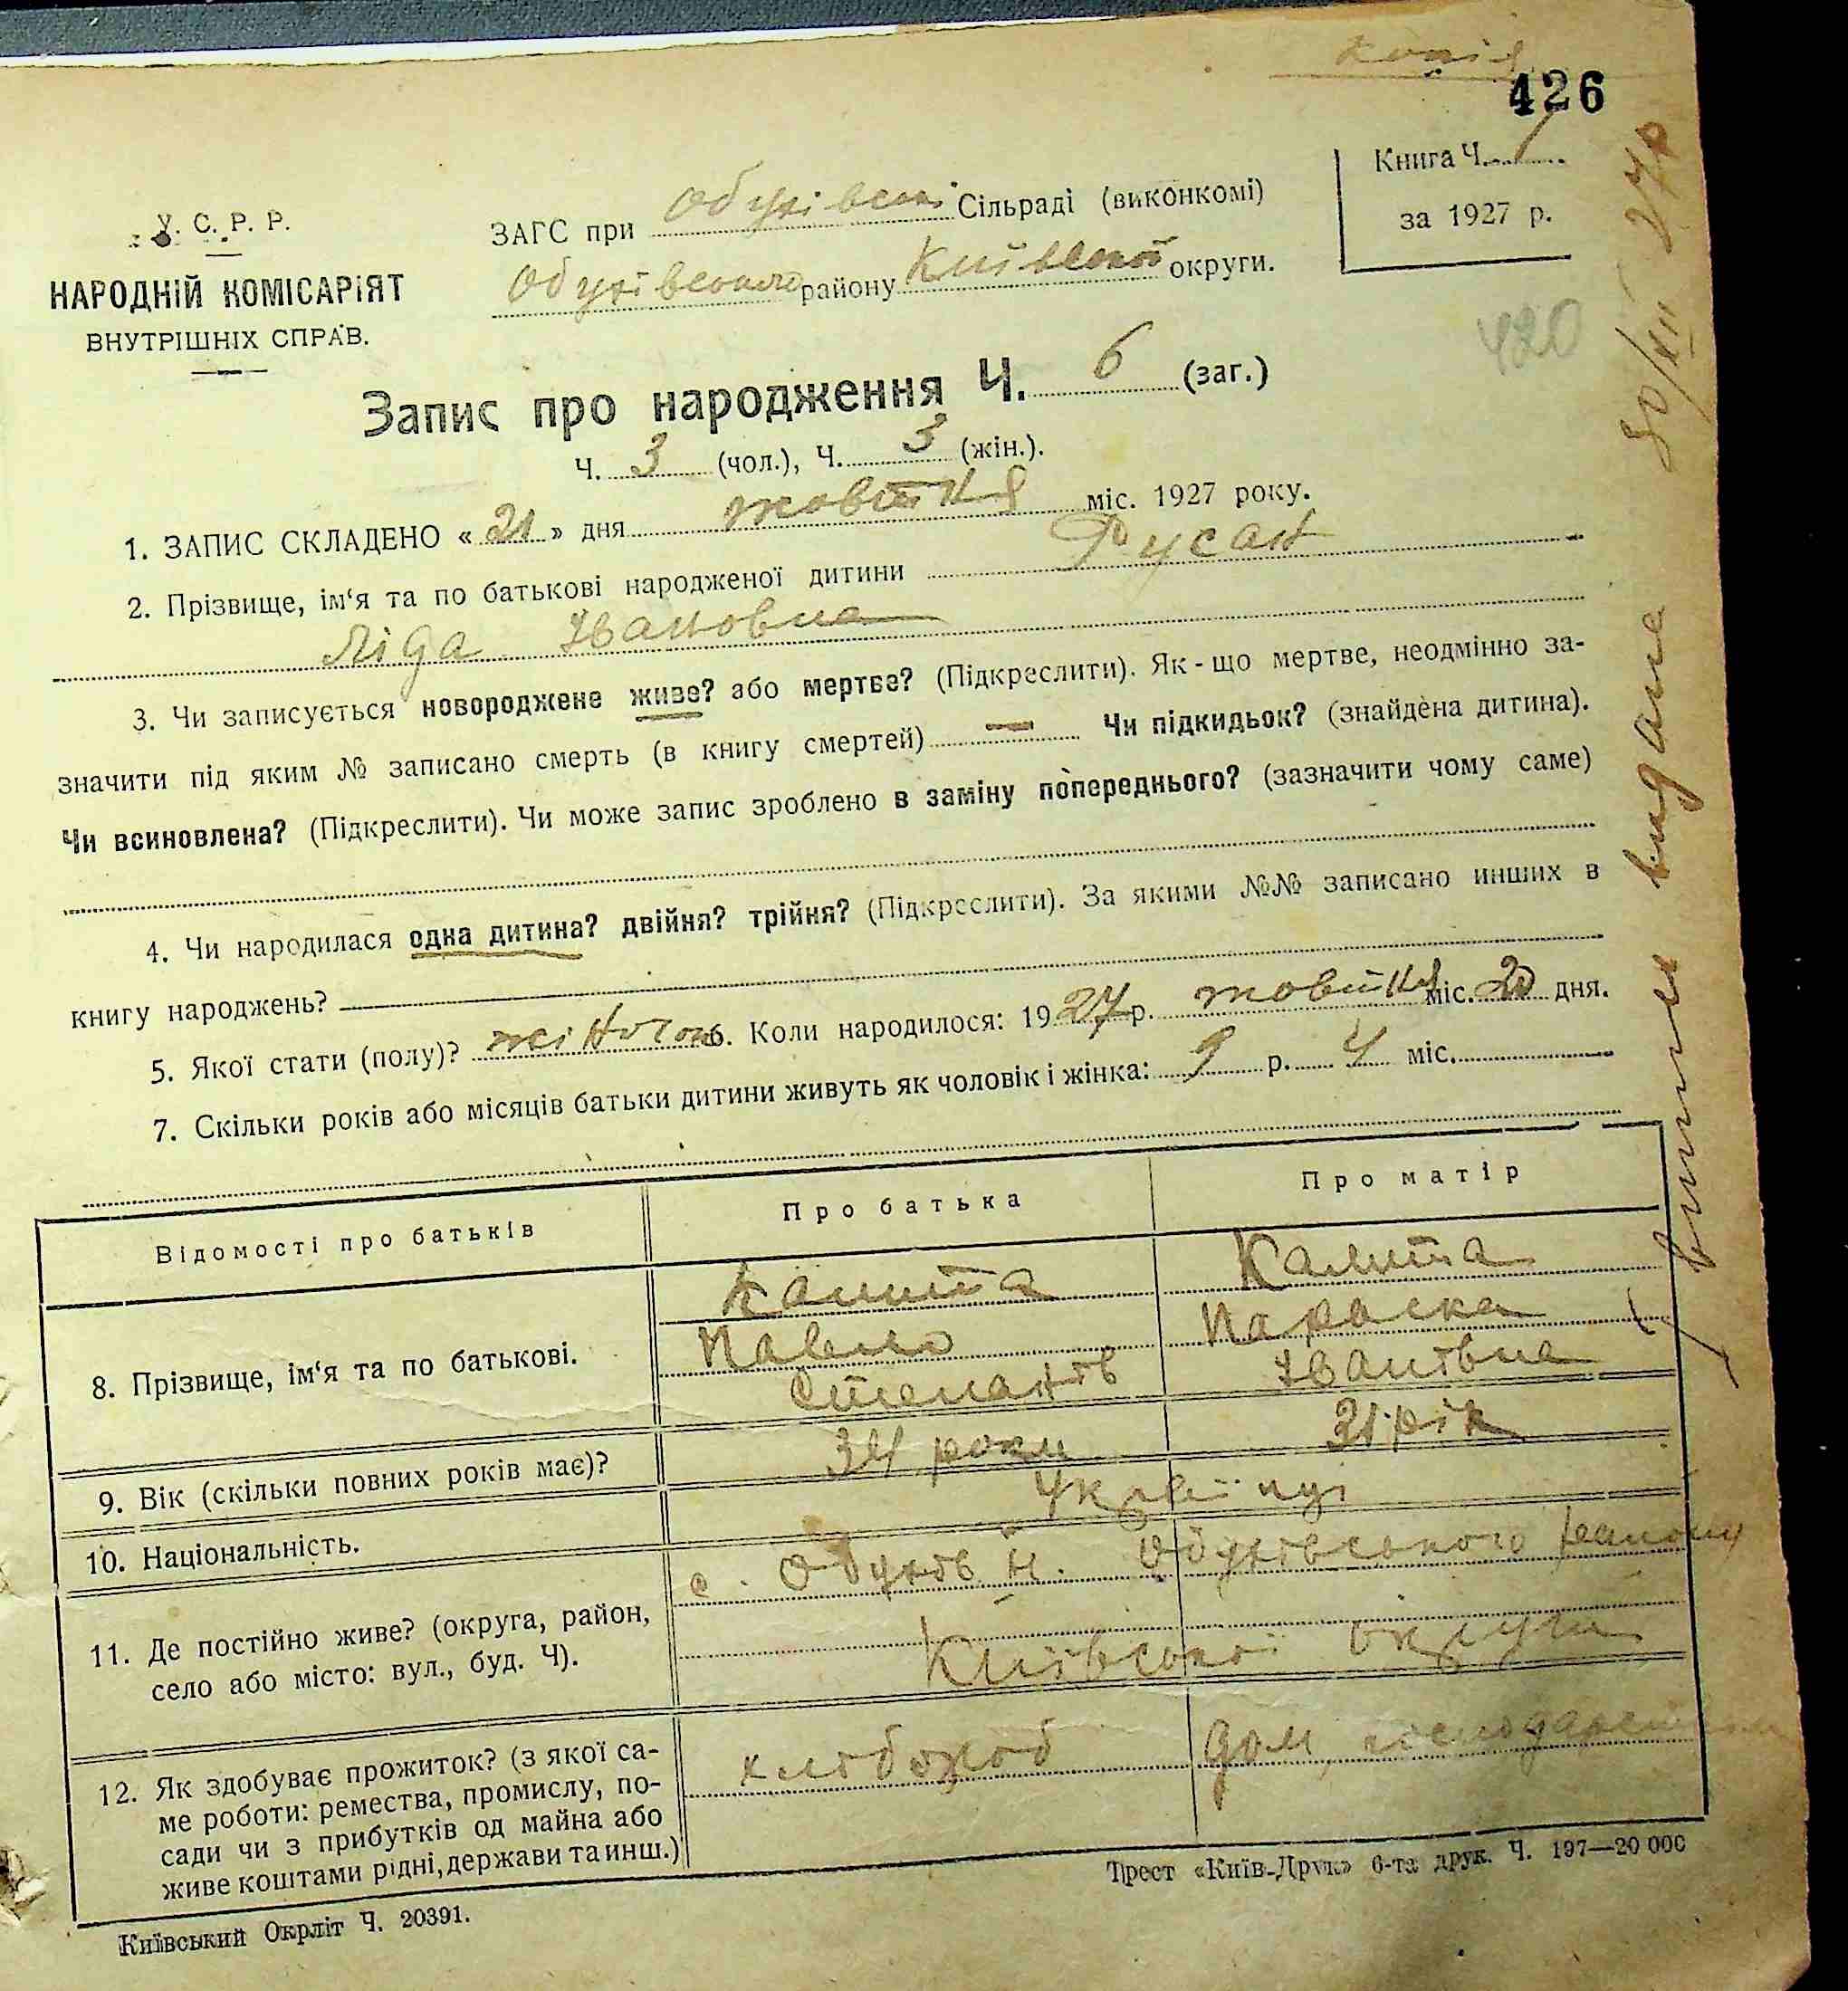 копія
426
Книга Ч. 1
за 1927 р.
У. С. Р. Р.
НАРОДНІЙ КОМІСАРІЯТ
ВНУТРІШНІХ СПРАВ.
ЗАГС при Обухівській Сільраді (виконкомі)
Обухівського району Київської округи.
420
Запис про народження Ч. 6 (заг.)
Ч. 3 (чол.), Ч. 3 (жін.).
1. ЗАПИС СКЛАДЕНО « 21 » дня жовтня міс. 1927 року.
2. Прізвище, ім‘я та по батькові народженої дитини Русан
Ліда Івановна
3. Чи записується новороджене живе? або мертве? (Підкреслити). Як-що мертве, неодмінно за-
значити під яким № записано смерть (в книгу смертей) — Чи підкидьок? (знайдена дитина).
Чи всиновлена? (Підкреслити). Чи може запис зроблено в заміну попереднього? (зазначити чому саме)
4. Чи народилася одна дитина? двійня? трійня? (Підкреслити). За якими №№ записано инших в
книгу народжень?
5. Якої стати (полу)? жіночої 6. Коли народилося: 1927 р. жовтня міс. 20 дня.
7. Скільки років або місяців батьки дитини живуть як чоловік і жінка: 9 р. 4 міс.
Відомості про батьків Про батька Про матір
8. Прізвище, ім‘я та по батькові.
Калита Калита
Павло Параска
Степанів Іванівна
9. Вік (скільки повних років має)? 34 роки 31 рік
10. Національність. Українці
11. Де постійно живе? (округа, район,
село або місто: вул., буд. Ч).
с. Обухів Обухівського району
Київської округи
12. Як здобуває прожиток? (з якої са-
ме роботи: ремества, промислу, по-
сади чи з прибутків од майна або
живе коштами рідні, держави та инш.)
хлібороб дом, господарство
Київський Окрліт Ч. 20391.
Трест «Київ-Друк» 6-та друк. Ч. 197—20 000
виписи видане 30/XII 27р